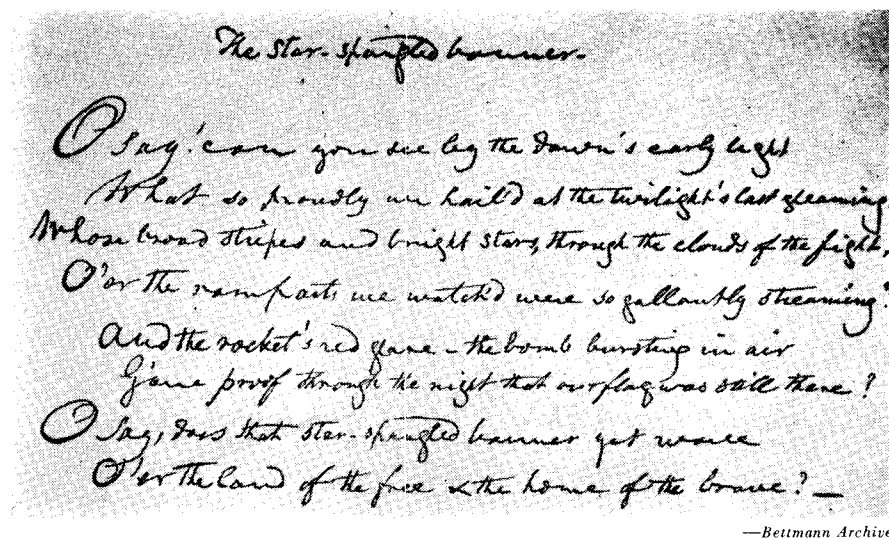 The star-spangled banner -
O say! can you see by the dawn's early light
What so proudly we hail'd at the twilight's last gleaming
Whose broad stripes and bright stars, through the clouds of the fight,
O'er the ramparts we watch'd were so gallantly streaming?
And the rocket's red glare - the bomb bursting in air
Gave proof through the night that our flag was still there?
O say, does that star-spangled banner yet wave
O'er the land of the free & the home of the brave? —
—Bettmann Archive